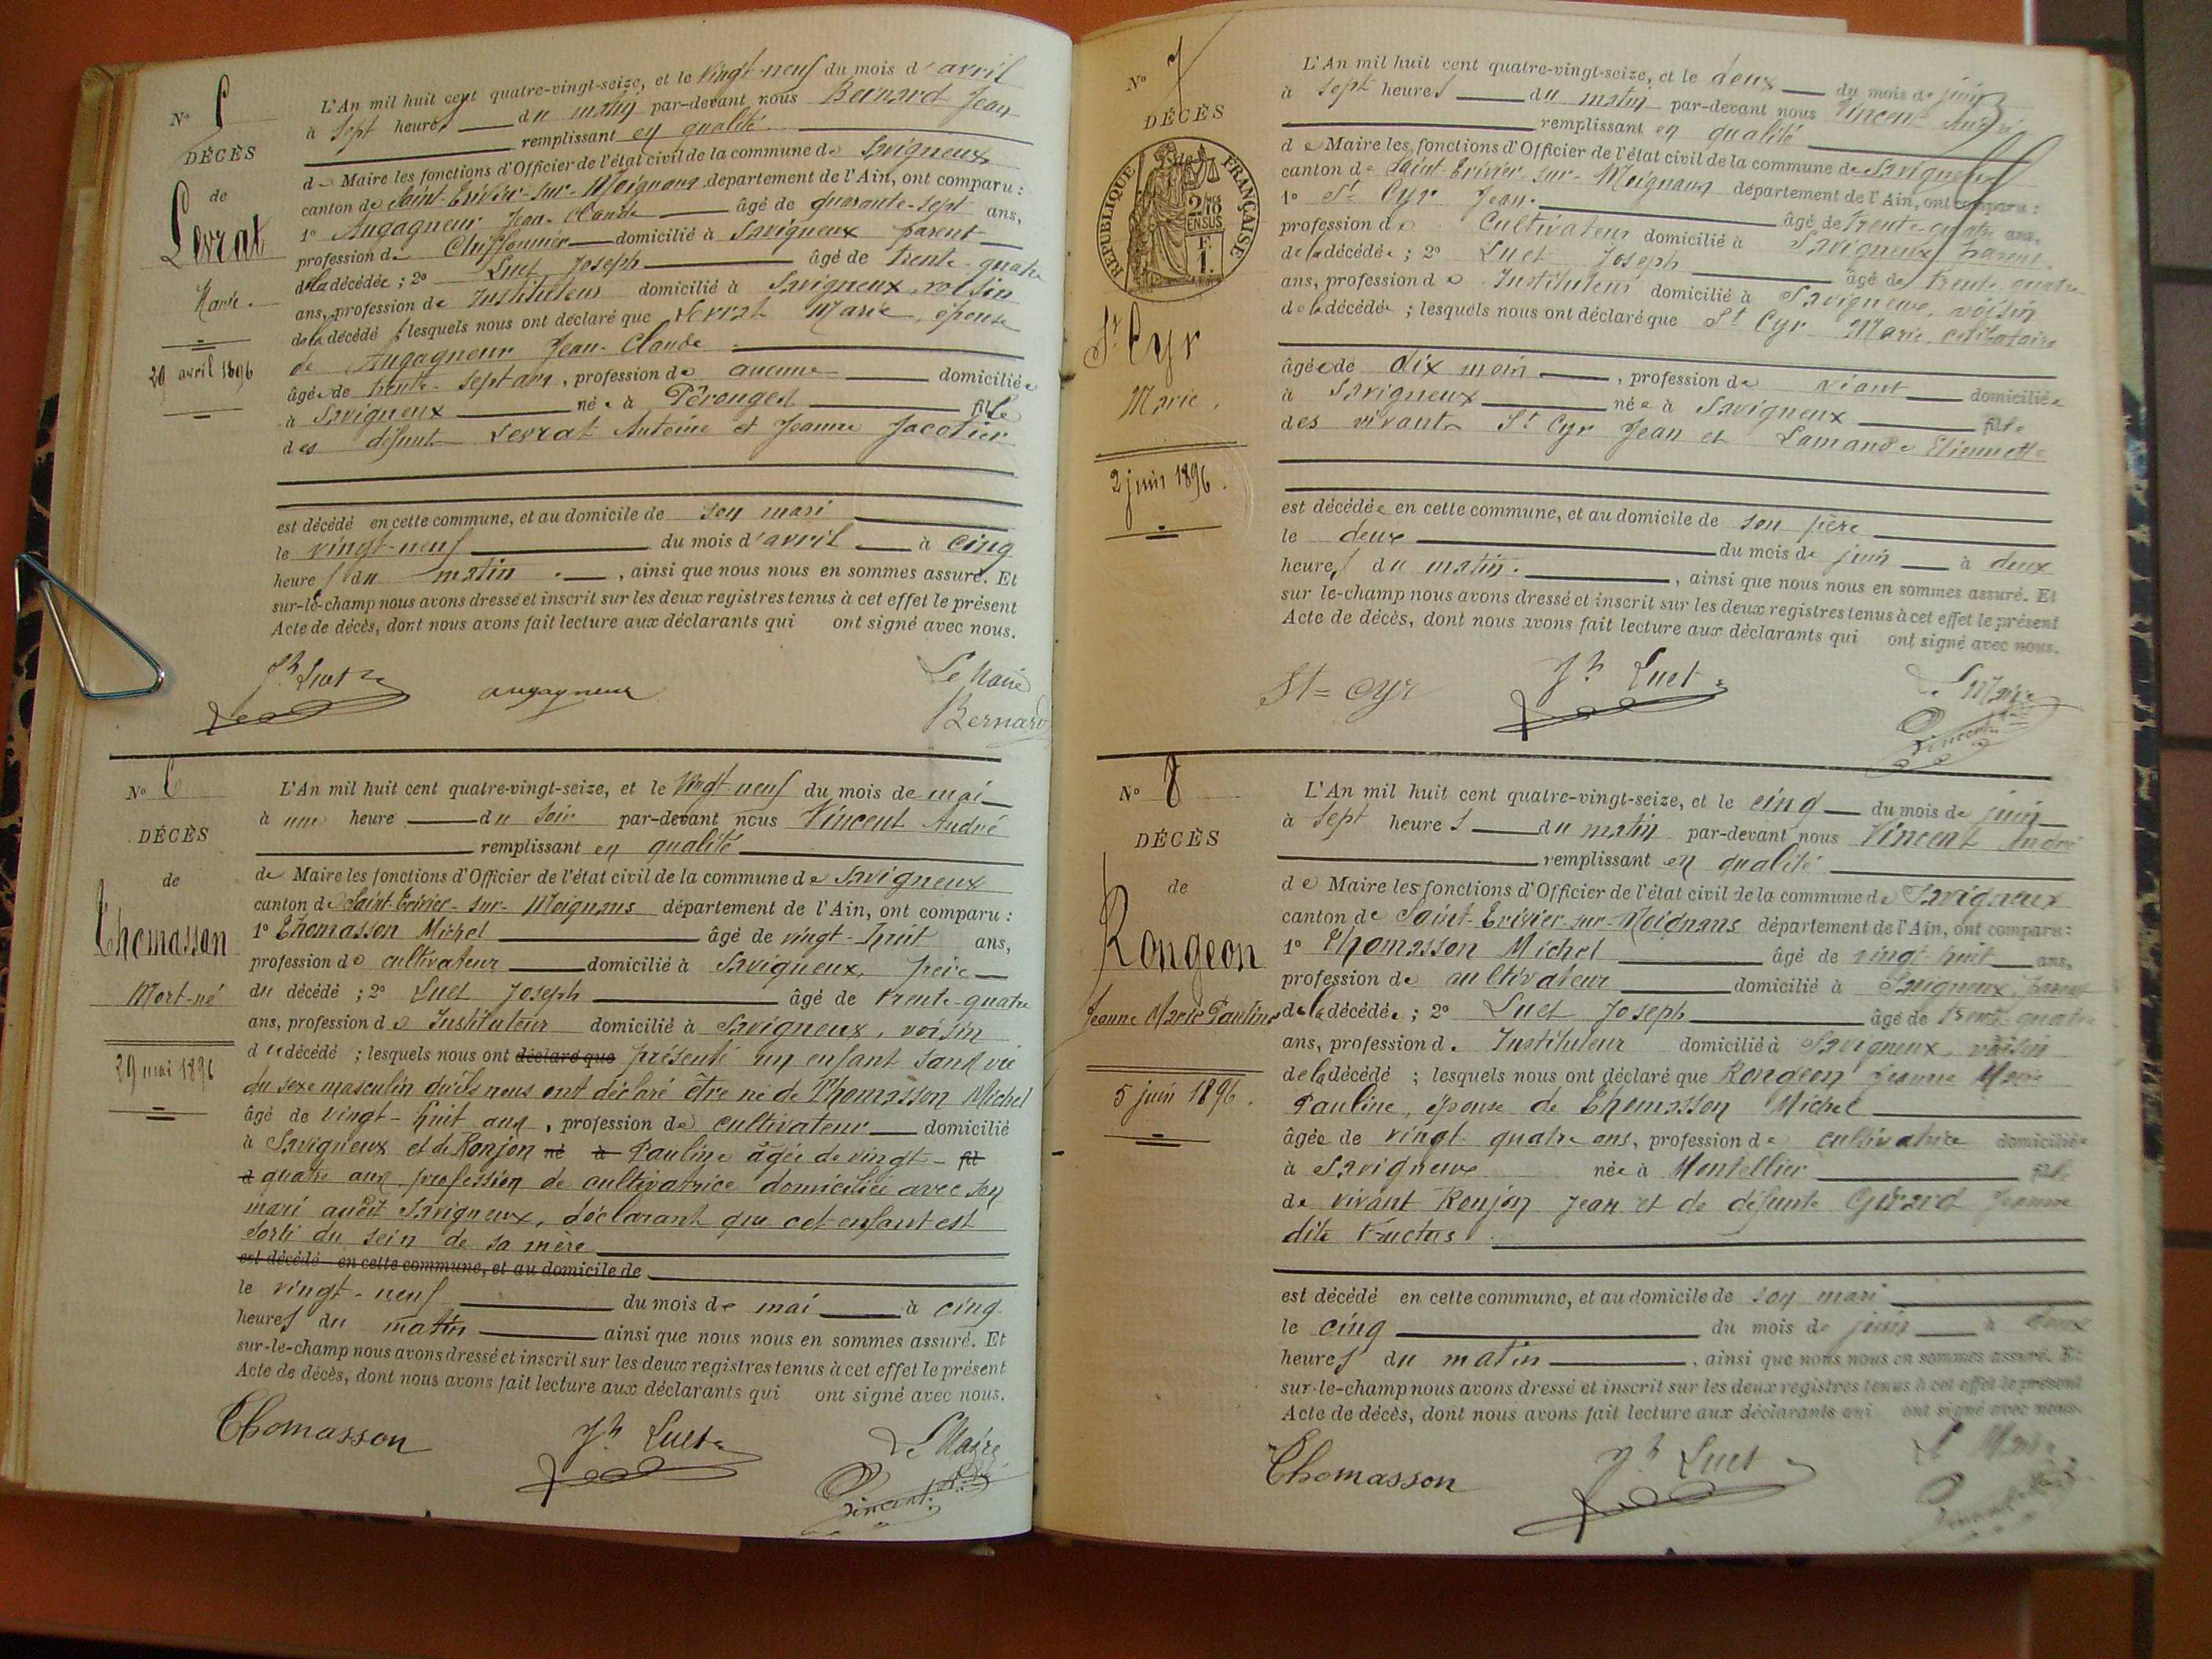 N° 5
DÉCÈS
de
Levrat
Marie.
29 avril 1896
L'An mil huit cent quatre-vingt-seize, et le vingt-neuf du mois d'avril
à sept heures du matin par-devant nous Bernard Jean
remplissant en qualité
de Maire les fonctions d'Officier de l'état civil de la commune de Savigneux
canton de Saint-Trivier-sur-Moignans département de l'Ain, ont comparu :
1° Augagneur Jean-Claude âgé de quarante-sept ans,
profession de Chiffonnier domicilié à Savigneux parent
de la décédée ; 2° Luet Joseph âgé de trente-quatre
ans, profession de Instituteur domicilié à Savigneux, voisin
de la décédé lesquels nous ont déclaré que Levrat Marie, épouse
de Augagneur Jean-Claude
âgée de trente-sept ans, profession de aucune domiciliée
à Savigneux née à Pérouges fille
des défunts Levrat Antoine et Jeanne Jacotier
est décédé en cette commune, et au domicile de son mari
le vingt-neuf du mois d'avril à cinq
heures du matin, ainsi que nous nous en sommes assuré. Et
sur-le-champ nous avons dressé et inscrit sur les deux registres tenus à cet effet le présent
Acte de décès, dont nous avons fait lecture aux déclarants qui ont signé avec nous.
Jh Luet augagneur Le Maire
Bernard
N° 6
DÉCÈS
de
Thomasson
Mort-né
29 mai 1896
L'An mil huit cent quatre-vingt-seize, et le vingt-neuf du mois de mai
à une heure du soir par-devant nous Vincent André
remplissant en qualité
de Maire les fonctions d'Officier de l'état civil de la commune de Savigneux
canton de Saint-Trivier-sur-Moignans département de l'Ain, ont comparu :
1° Thomasson Michel âgé de vingt-huit ans,
profession de cultivateur domicilié à Savigneux, père
du décédé ; 2° Luet Joseph âgé de trente-quatre
ans, profession de Instituteur domicilié à Savigneux, voisin
du décédé ; lesquels nous ont déclaré que présenté un enfant sans vie
du sexe masculin qu'ils nous ont déclaré être né de Thomasson Michel
âgé de vingt-huit ans, profession de cultivateur domicilié
à Savigneux et de Ronjon né à Pauline âgée de vingt- fil
d quatre ans profession de cultivatrice domiciliée avec son
mari audit Savigneux, déclarant que cet enfant est
sorti du sein de sa mère
est décédé en cette commune, et au domicile de
le vingt-neuf du mois de mai à cinq
heures du matin ainsi que nous nous en sommes assuré. Et
sur-le-champ nous avons dressé et inscrit sur les deux registres tenus à cet effet le présent
Acte de décès, dont nous avons fait lecture aux déclarants qui ont signé avec nous.
Thomasson Jh Luet Le Maire
Vincent
N° 7
DÉCÈS
RÉPUBLIQUE FRANÇAISE
2/10 EN SUS
F.
1.
St Cyr
Marie.
2 juin 1896.
L'An mil huit cent quatre-vingt-seize, et le deux du mois de juin
à sept heures du matin par-devant nous Vincent André
remplissant en qualité
de Maire les fonctions d'Officier de l'état civil de la commune de Savigneux
canton de Saint-Trivier-sur-Moignans département de l'Ain, ont comparu :
1° St Cyr Jean. âgé de trente-quatre ans,
profession de Cultivateur domicilié à Savigneux, parent
de la décédée ; 2° Luet Joseph âgé de trente-quatre
ans, profession de Instituteur domicilié à Savigneux, voisin
de la décédée ; lesquels nous ont déclaré que St Cyr Marie célibataire
âgée de dix mois, profession de néant domiciliée
à Savigneux née à Savigneux fille
des vivants St Cyr Jean et Lamande Etiennette
est décédée en cette commune, et au domicile de son père
le deux du mois de juin à deux
heures du matin., ainsi que nous nous en sommes assuré. Et
sur le-champ nous avons dressé et inscrit sur les deux registres tenus à cet effet le présent
Acte de décès, dont nous avons fait lecture aux déclarants qui ont signé avec nous.
St=Cyr Jh Luet Le Maire
Vincent
N° 8
DÉCÈS
de
Rongeon
Jeanne Marie Pauline
5 juin 1896.
L'An mil huit cent quatre-vingt-seize, et le cinq du mois de juin
à sept heures du matin par-devant nous Vincent André
remplissant en qualité
de Maire les fonctions d'Officier de l'état civil de la commune de Savigneux
canton de Saint-Trivier-sur-Moignans département de l'Ain, ont comparu :
1° Thomasson Michel âgé de vingt-huit ans,
profession de cultivateur domicilié à Savigneux, parent
de la décédée ; 2° Luet Joseph âgé de trente-quatre
ans, profession d. Instituteur domicilié à Savigneux voisin
de la décédé ; lesquels nous ont déclaré que Rongeon Jeanne Marie
Pauline, épouse de Thomasson Michel
âgée de vingt-quatre ans, profession de cultivatrice domiciliée
à Savigneux née à Montellier fille
de vivant Ronjon Jean et de défunte Gérard Jeanne
dite
est décédé en cette commune, et au domicile de son mari
le cinq du mois de juin à deux
heures du matin, ainsi que nous nous en sommes assuré. Et
sur-le-champ nous avons dressé et inscrit sur les deux registres tenus à cet effet le présent
Acte de décès, dont nous avons fait lecture aux déclarants qui ont signé avec nous.
Thomasson Jh Luet Le Maire
Vincent